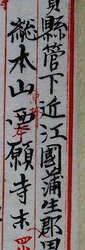 賀縣管下近江國蒲生郡
總本山西願寺末